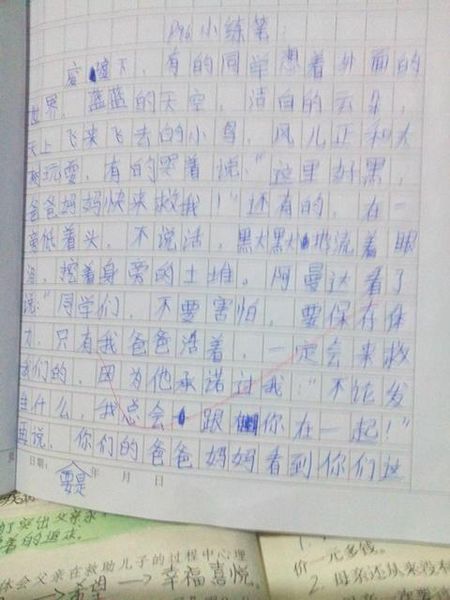 P96小练笔:
废墟下，有的同学想着外面的
世界，蓝蓝的天空，洁白的云朵，
天上飞来飞去的小鸟，风儿正和大
树玩耍，有的哭着说:"这里好黑，
爸爸妈妈快来救我！"还有的，在一
旁低着头，不说话，默默地流着眼
泪，挖着身旁的土堆。阿曼达看了
说:"同学们，不要害怕，要保存体
力，只有我爸爸活着，一定会来救
我们的，因为他承诺过我:'不论发
生什么，我总会跟你在一起！"
再说，你们的爸爸妈妈看到你们这
日期: 年 月 日
要是
突出父亲
着的语法。
体会父亲在救助儿子的过程中心理
希望→幸福喜悦。
1.
价一元多钱。
2. 母亲还从来没